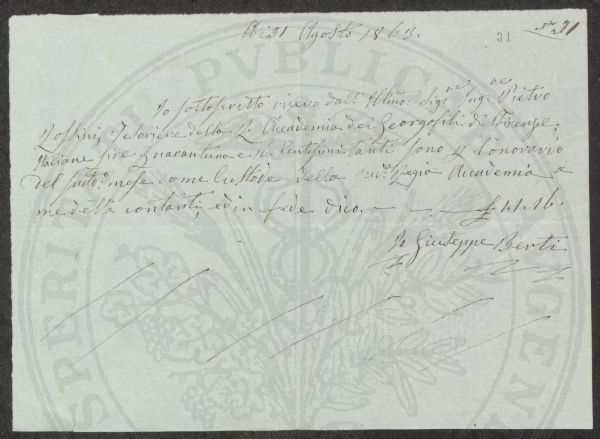 Di 31 Agosto 1863.
31
N° 31
Io sottoscritto ricevo dall' Illmo: Sigre Ingre Pietro
Rossini, Tesoriere della Rl Accademia dei Georgofili di Firenze,
Italiane Lire Quarantuna e 16 Centesimi tanti sono p l'onorario
del sudo: mese come Custode della sudta Regia Accademia a
me dette contanti, ed in fede dico. — — £ 41. 16.
Io Giuseppe Berti
PROSPERITATI PUBLICAE AUGENDAE